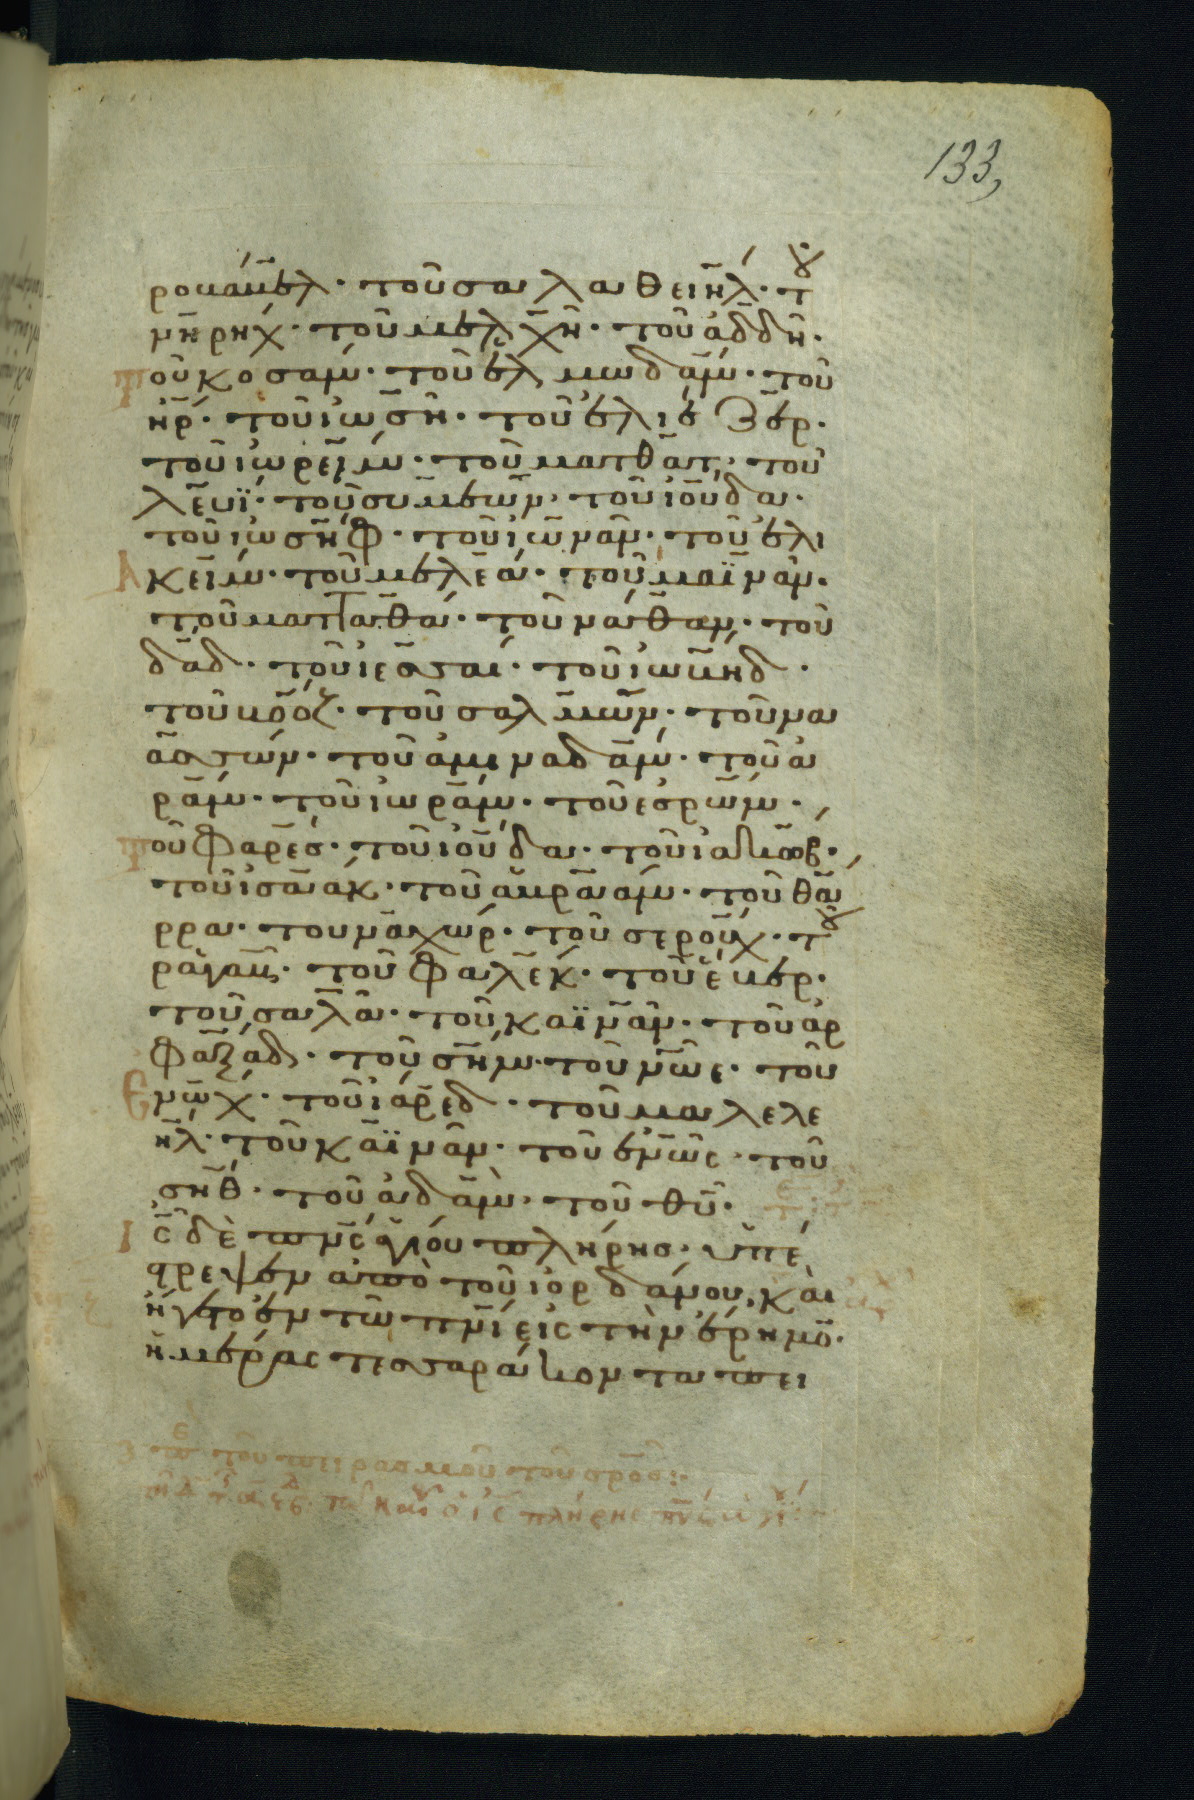 133,
ροβάβελ· τοῦ σαλαθειήλ· τοῦ
νηρηχ· τοῦ μελχῆ· τοῦ ἀδδῆ·
τοῦ κοσάμ· τοῦ ἐλμωδάμ· τοῦ
ἠρ· τοῦ ἰωσῆ· τοῦ ἐλιέζερ·
τοῦ ἰωρείμ· τοῦ ματθάτ· τοῦ
λευϊ· τοῦ συμεών· τοῦ ἰούδα·
τοῦ ἰωσήφ· τοῦ ἰωνᾶν· τοῦ ἐλι
Ακείμ· τοῦ μελεά· τοῦ μαϊνάν·
τοῦ ματταθά· τοῦ νάθαν· τοῦ
δᾱδ· τοῦ ἰεσσαί· τοῦ ἰωβήδ·
τοῦ βοόζ· τοῦ σαλμών· τοῦ να
ασσών· τοῦ ἀμιναδάμ· τοῦ ἀ
ράμ· τοῦ ἰωράμ· τοῦ ἐσρώμ·
τοῦ φαρές· τοῦ ἰούδα· τοῦ ἰακώβ·
τοῦ ἰσαάκ· τοῦ ἀβραάμ· τοῦ θά
ρρα· του ναχώρ· τοῦ σερούχ· τοῦ
ραγαῦ· τοῦ φαλέκ· τοῦ ἕβερ·
τοῦ σαλᾶ· τοῦ καϊνάν· τοῦ ἀρ
φαξάδ· τοῦ σήμ· τοῦ νῶε· τοῦ
Ενώχ· τοῦ ἰαρεδ· τοῦ μαλελε
ήλ· τοῦ καϊνάν· τοῦ ἐνῶς· τοῦ
σήθ· τοῦ ἀδάμ· τοῦ θῡ·
Ις̄ δὲ πνς̄ ἁγίου πλήρης· ὑπέ
στρεψεν ἀπὸ τοῦ ἰορδάνου, καὶ
ἤγετο ἐν τῶ πνι εἰς τὴν ἔρημο·
ἡμέρας τεσσαράκοντα πει
τοῦ πειρασμοῦ τοῦ
ὁ ις̄ πλήρης πνς̄